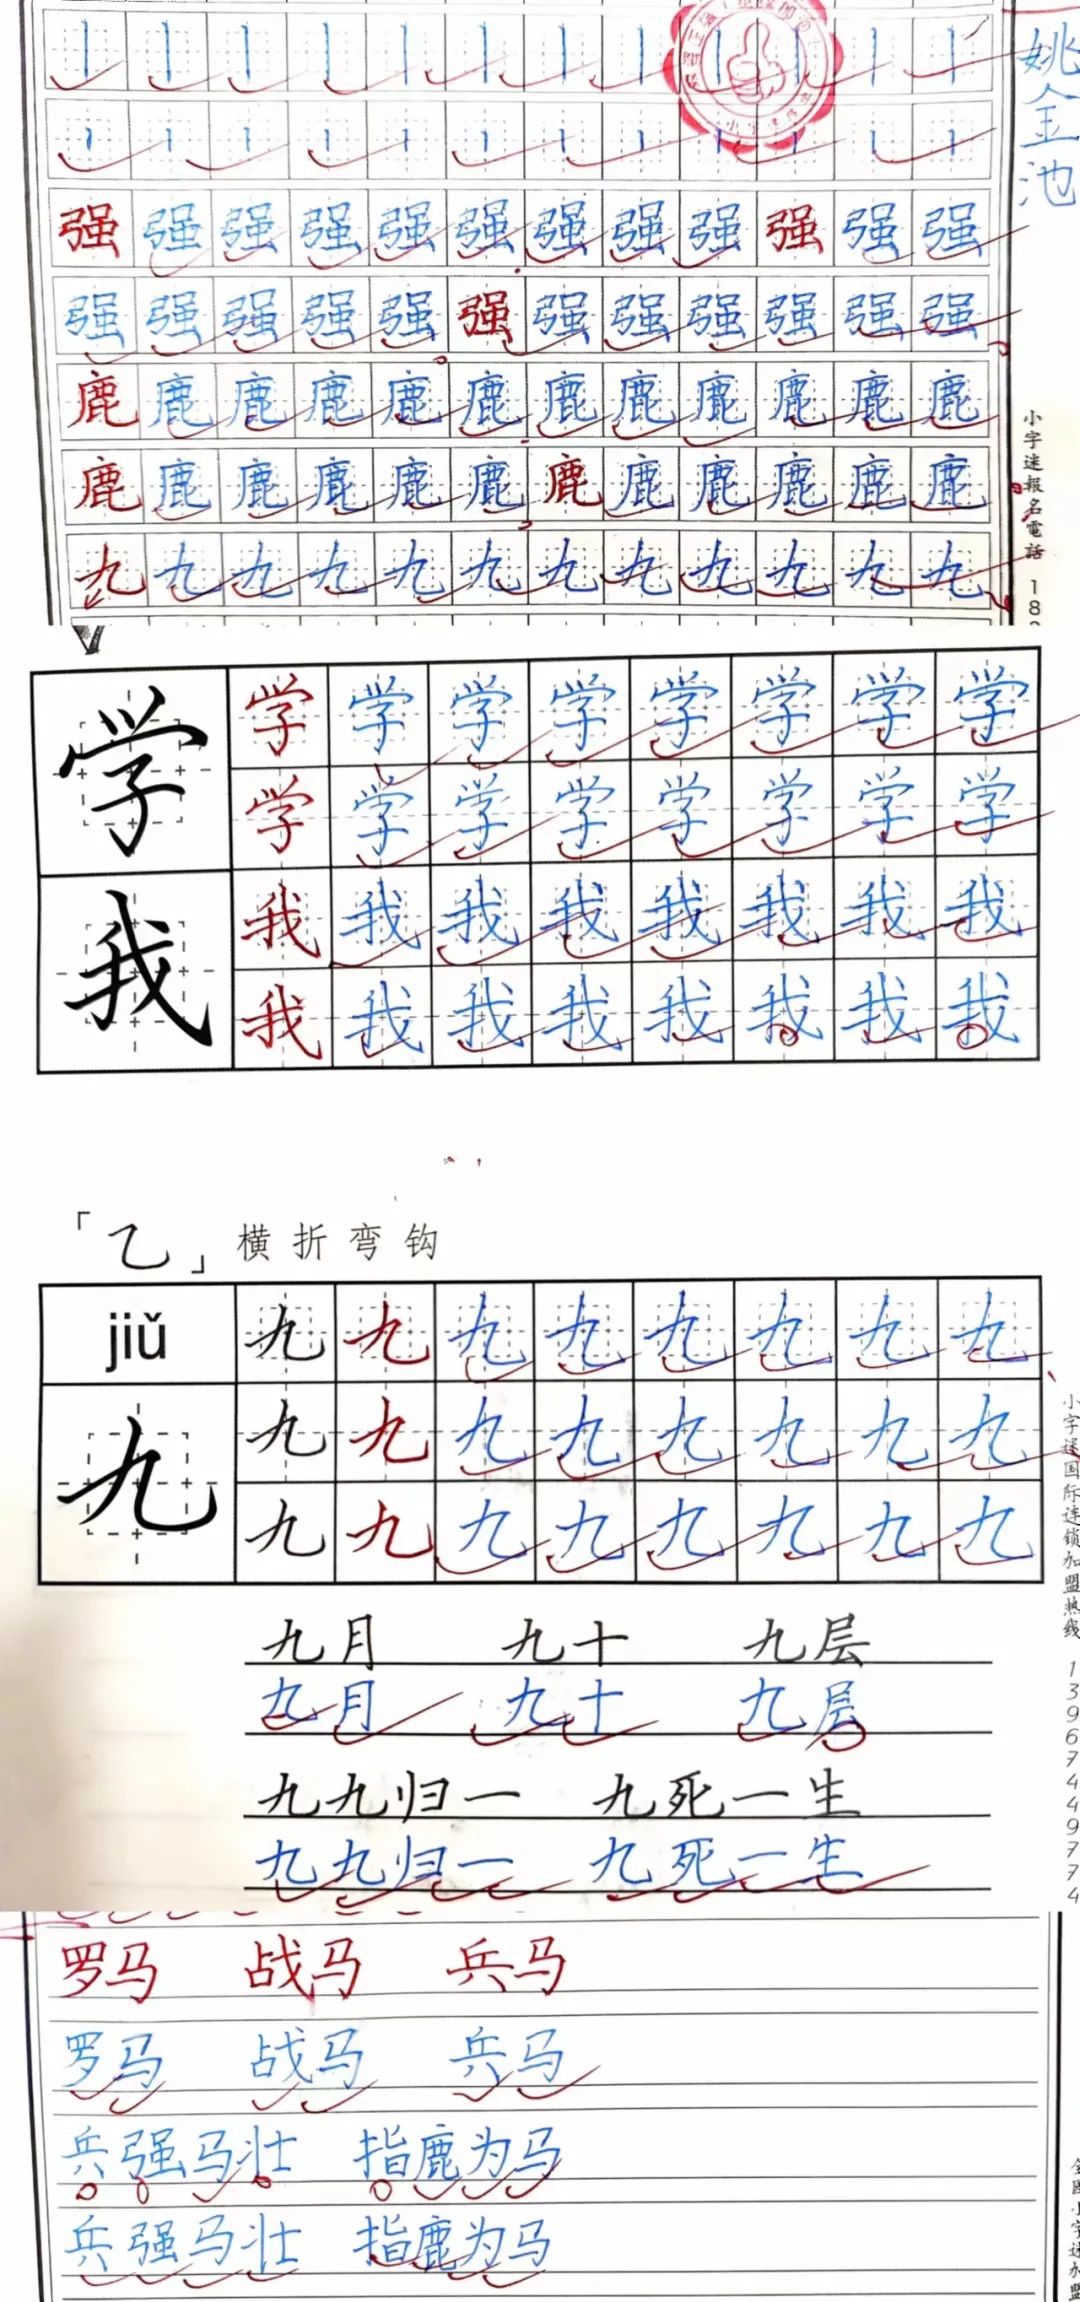 丨丨丨丨丨丨丨丨丨丨丨丨
丨丨丨丨丨丨丨丨丨丨丨丨
姚金池
强强强强强强强强强强强强
强强强强强强强强强强强强
鹿鹿鹿鹿鹿鹿鹿鹿鹿鹿鹿鹿
鹿鹿鹿鹿鹿鹿鹿鹿鹿鹿鹿鹿
九九九九九九九九九九九九
小字迷報名電話 18
学
学学学学学学学学
学学学学学学学学
我
我我我我我我我我
我我我我我我我我
「乙」横折弯钩
jiǔ
九九九九九九九九
九
九九九九九九九九
九九九九九九九九
九月 九十 九层
九月 九十 九层
九九归一 九死一生
九九归一 九死一生
小字迷国际连锁加盟热线 13967449774
罗马 战马 兵马
罗马 战马 兵马
兵强马壮 指鹿为马
兵强马壮 指鹿为马